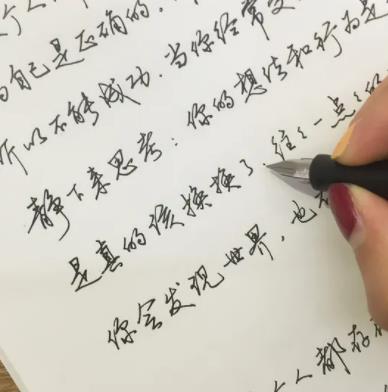 自己是正确的.
所以不能成功.当你经常
静下来思考:你的想法和行为是
是真的该换换了.往往一点点
你会发现世界,也
都存